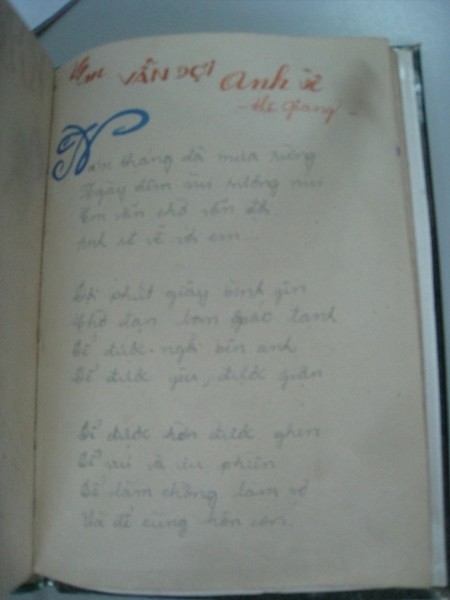 Em VẪN ĐỢI anh về
- Hà Giang -
Năm tháng dài mưa rừng
Ngày đêm núi
Em vẫn chờ vẫn đợi
Anh sẽ về với em...
Đợi phút giây bình yên
Chờ đạn bom tanh
Để được ngồi bên anh
Để được yêu, được giận
Để được hờn được ghen
Để vui và ưu phiền
Để làm chồng làm vợ
Và để cùng hôn con.